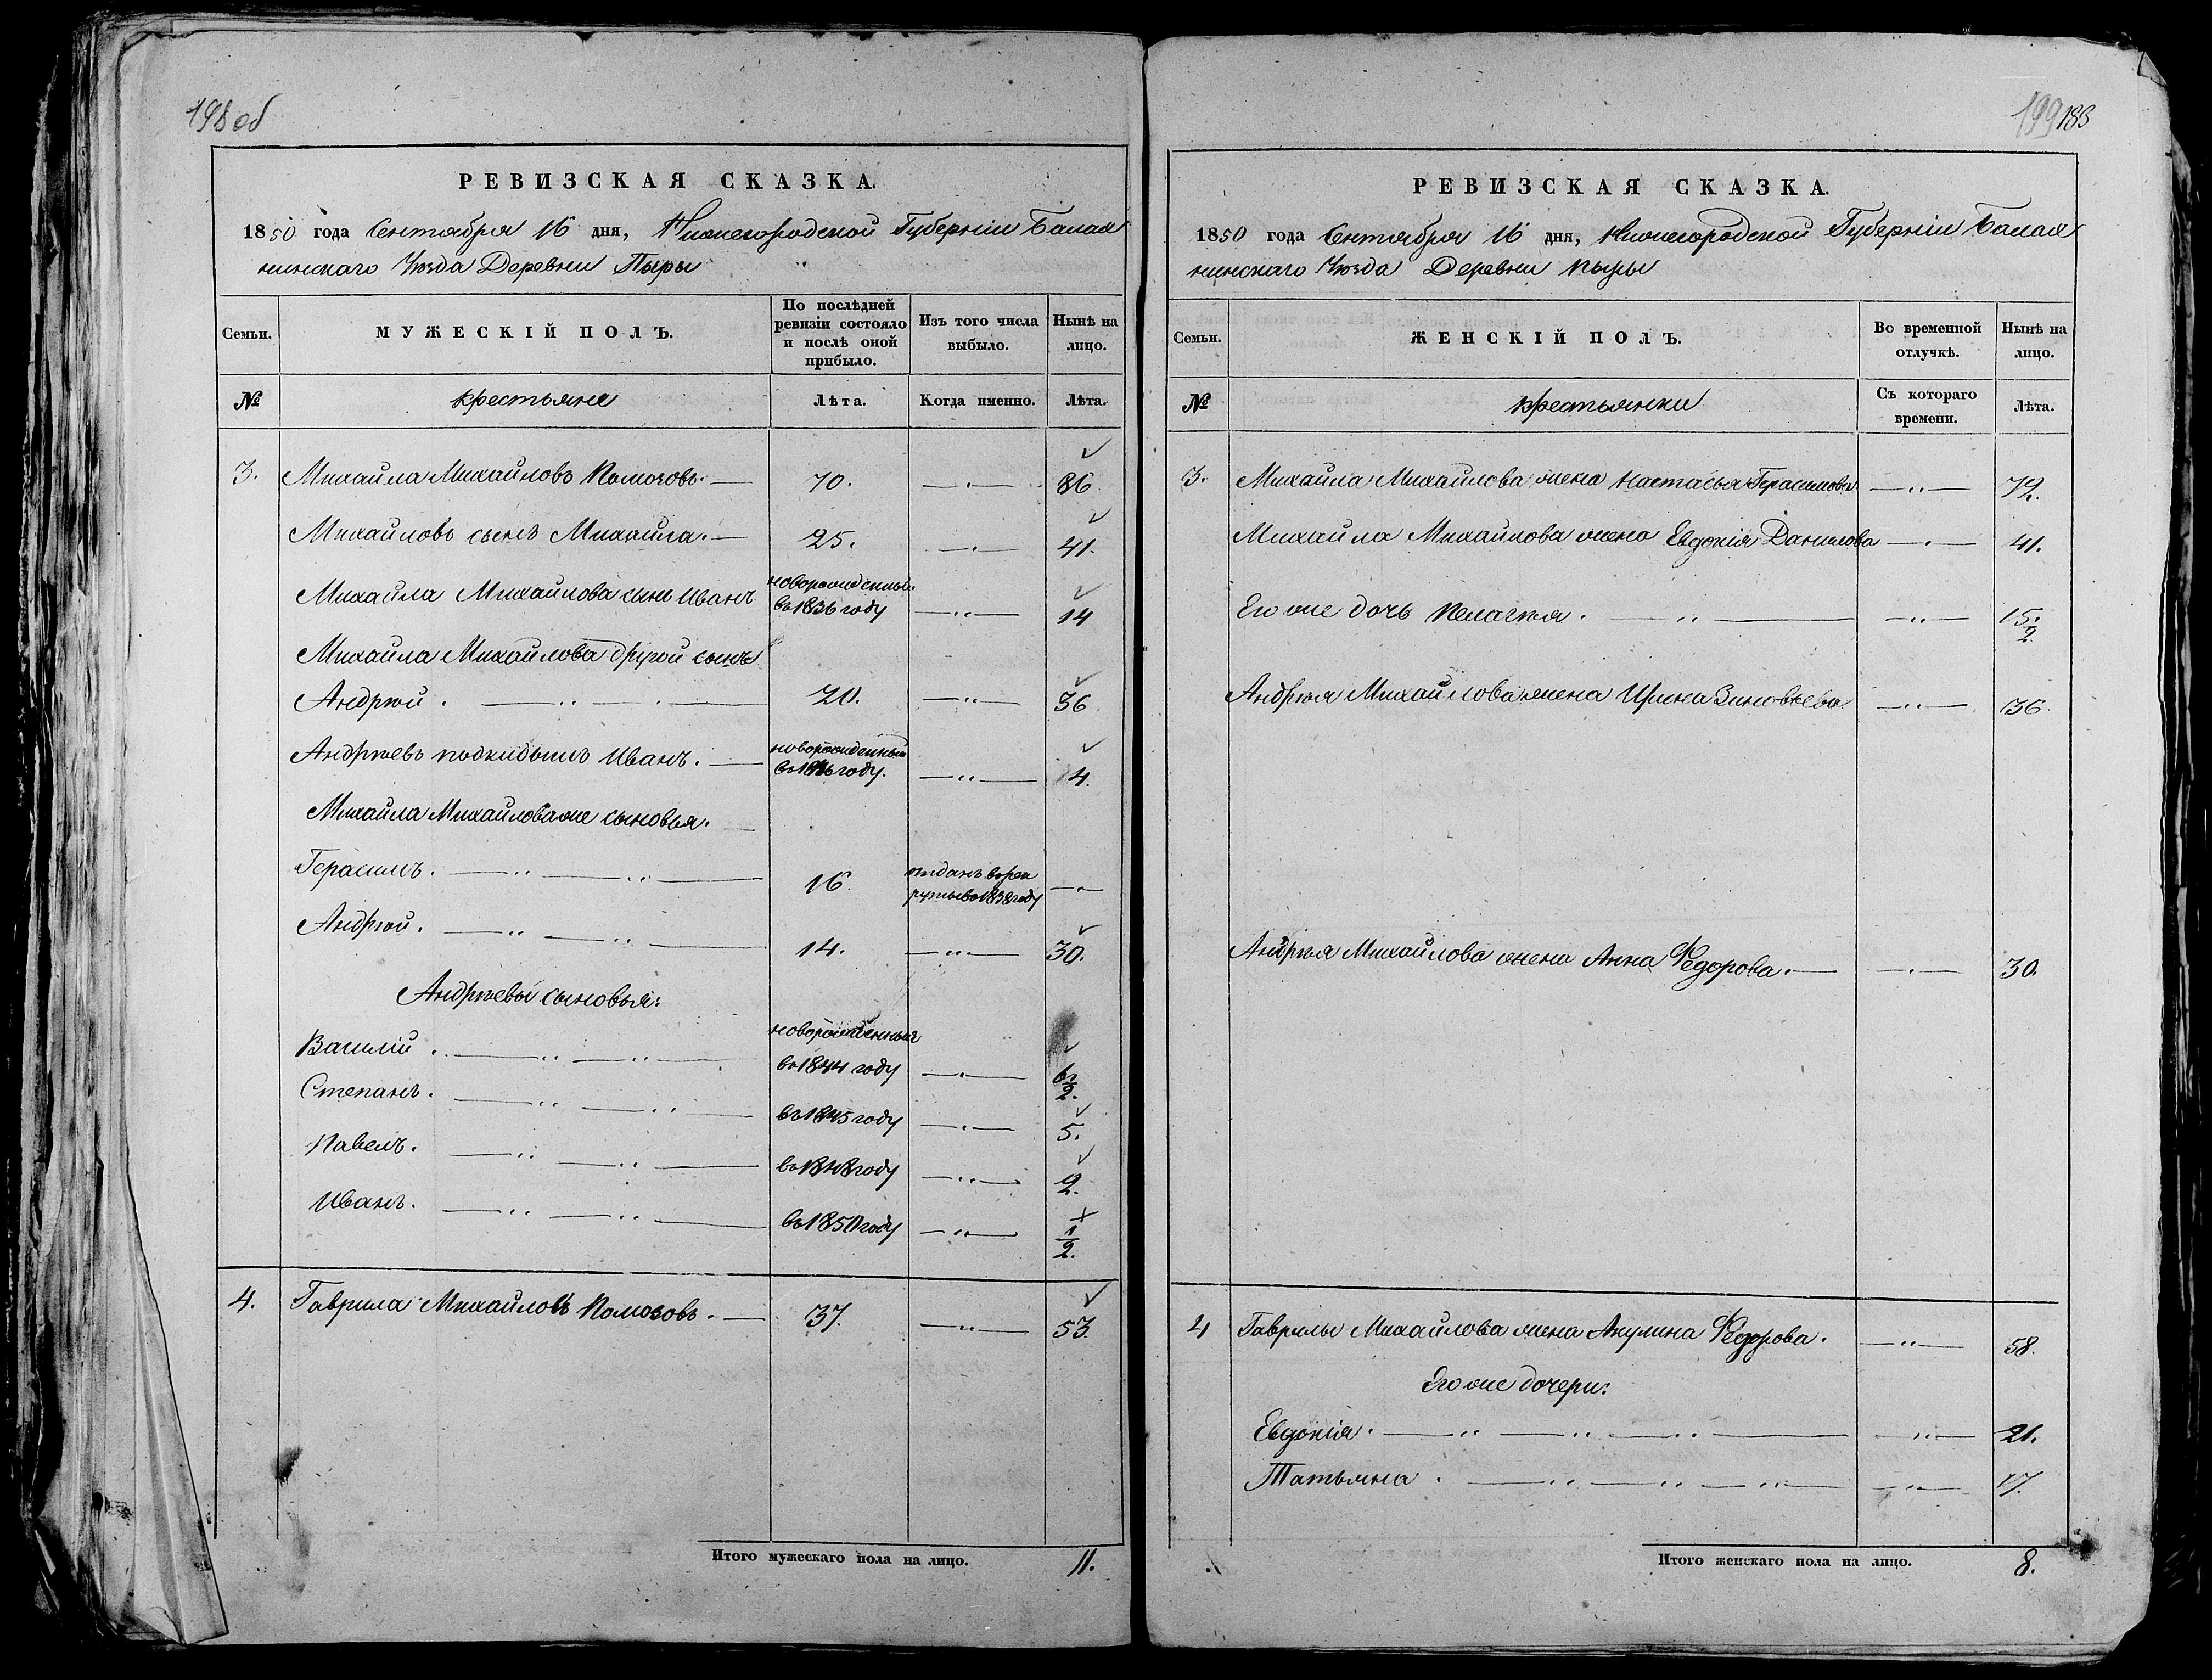 198 об
РЕВИЗСКАЯ СКАЗКА.
1850 года Сентября 16 дня, Нижегородской Губерніи Балах
нинскаго Уѣзда Деревни Пыры
Семьи.
МУЖЕСКІЙ ПОЛЪ.
По послѣдней ревизіи состояло и послѣ оной прибыло.
Изъ того числа выбыло.
Нынѣ на лицо.
№
крестьяне
Лѣта.
Когда именно.
Лѣта.
3. Михайла Михайловъ Помоговъ. — 70. — „ — 86.
Михайловъ сынъ Михайла. — 25. — „ — 41.
Михайла Михайлова сынъ Иванъ новорожденный въ 1836 году — „ — 14
Михайла Михайлова другой сынъ
Андрѣй . — „ — . — 20. — „ — 36
Андрѣевъ подкидышъ Иванъ. — новорожденный въ 1846 году. — „ — 4.
Михайла Михайлова же сыновья. —
Герасимъ. — „ — „ — 16. отданъ въ рек руты въ 1838 году — „ —
Андрѣй. — „ — „ — 14. — „ — 30.
Андрѣевы сыновья:
Василій . — „ — „ — новорожденный въ 1844 году — „ — 6 1/2.
Степанъ. — „ — „ — въ 1845 году — „ — 5.
Павелъ. — „ — „ — въ 1848 году — „ — 2.
Иванъ. — „ — „ — въ 1850 году — „ — 1/2.
4. Гаврила Михайловъ Помоговъ. — 37. — „ — 53.
Итого мужескаго пола на лицо. 11.
199 183
РЕВИЗСКАЯ СКАЗКА.
1850 года Сентября 16 дня, Нижегородской Губерніи Балах
нинскаго Уѣзда Деревни Пыры
Семьи.
ЖЕНСКІЙ ПОЛЪ.
Во временной отлучкѣ.
Нынѣ на лицо.
№
крестьянки
Съ котораго времени.
Лѣта.
3. Михайла Михайлова жена Настасья Герасимова — „ — 72.
Михайла Михайлова жена Евдокія Данилова — „ — 41.
Его же дочь Пелагѣя . — „ — — „ — 15. 1/2
Андрѣя Михайлова жена Ирина Зиновьева. — „ — 36.
Андрѣя Михайлова жена Анна Федорова. — — „ — 30.
4 Гаврилы Михайлова жена Акулина Федорова. — „ — 58.
Его же дочери:
Евдокія. — „ — „ — „ — — „ — 21.
Татьяна . — „ — „ — „ — — „ — 17.
Итого женскаго пола на лицо. 8.